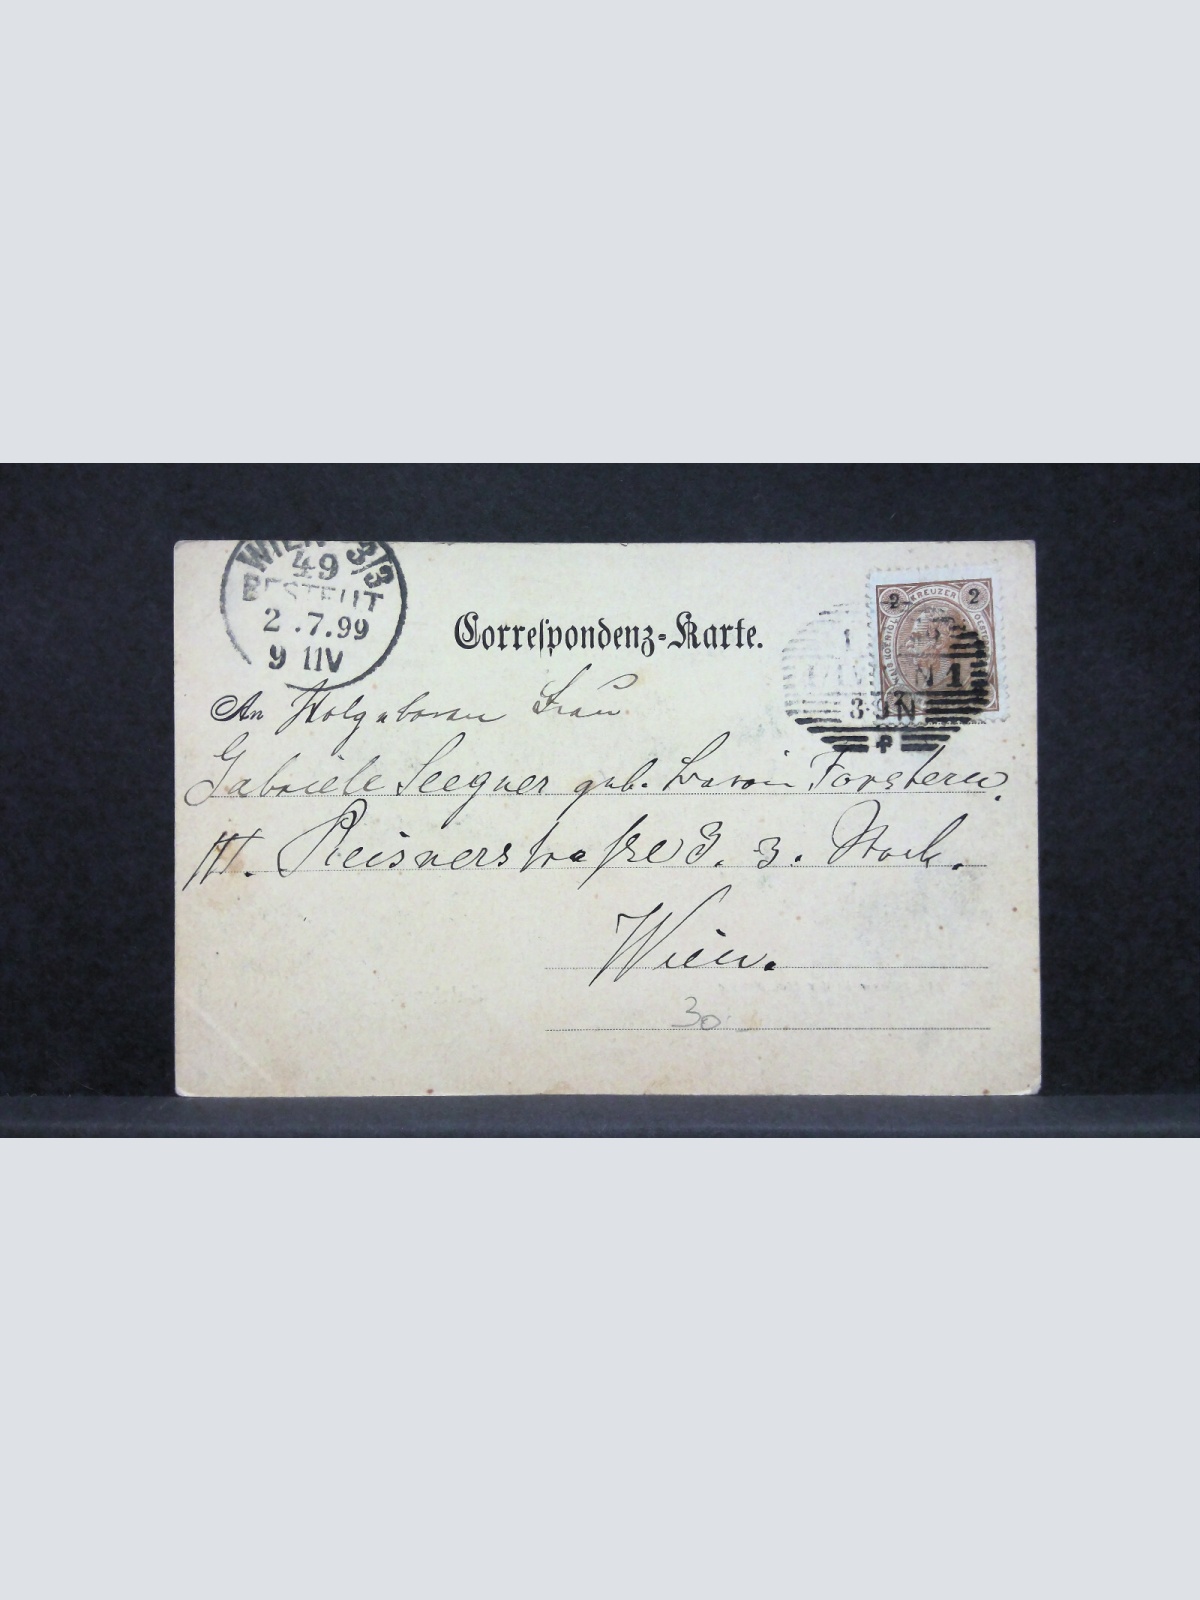 WIEN 3/3
49
BESTELLT
2.7.99
9 11V
Correspondenz-Karte.
KREUZER
2 2
WIEN 1
3·9N
An Wolgeboren Frau
Gabriele Seegner geb. Baroin Forstern.
III. Reisnerstraße 3. 3. Stock.
Wien.
30